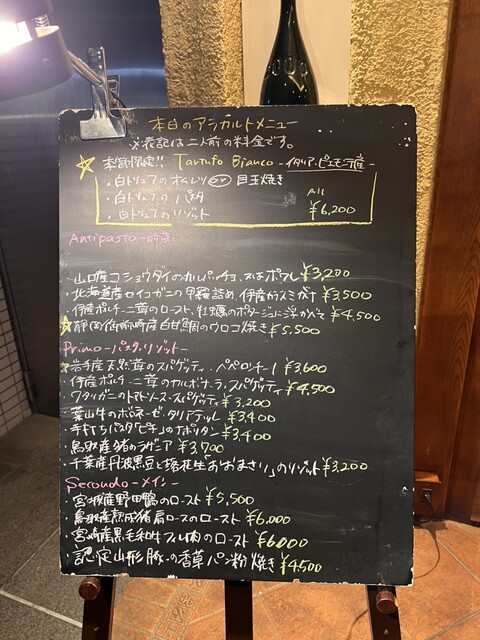 本日のアラカルトメニュー
※表記は二人前の料金です。
季節限定!! Tartufo Bianco -イタリア・ピエモンテ産-
・白トリュフのオムレツ or 目玉焼き
・白トリュフのパスタ All
・白トリュフのリゾット ¥6,200
Antipasto -前菜-
・山口産コショウダイのカルパッチョ ¥3,200
・北海道産セイコガニの甲羅詰め、伊産カラスミがけ ¥3,500
・伊産ポルチーニ茸のロースト、牡蠣のポタージュに浮かべて ¥4,500
・静岡御前崎産白甘鯛のウロコ焼き ¥5,500
Primo -パスタ・リゾット-
・岩手産天然茸のスパゲッティ、ペペロンチーノ ¥3,600
・伊産ポルチーニ茸のカルボナーラ、スパゲッティ ¥4,500
・ワタリガニのトマトソース・スパゲッティ ¥3,200
・葉山牛のボロネーゼ・タリアテッレ ¥3,400
・手打ちパスタ「ピチ」のナポリタン ¥3,400
・鳥取産猪のラザニア ¥3,700
・千葉産丹波黒豆と落花生「おおまさり」のリゾット ¥3,200
Secondo -メイン-
・宮城産野田鴨のロースト ¥5,500
・鳥取産熟成猪肩ロースのロースト ¥6,000
・宮崎産黒毛和牛 肉のロースト ¥6,000
・認定山形豚の香草パン粉焼き ¥4,500